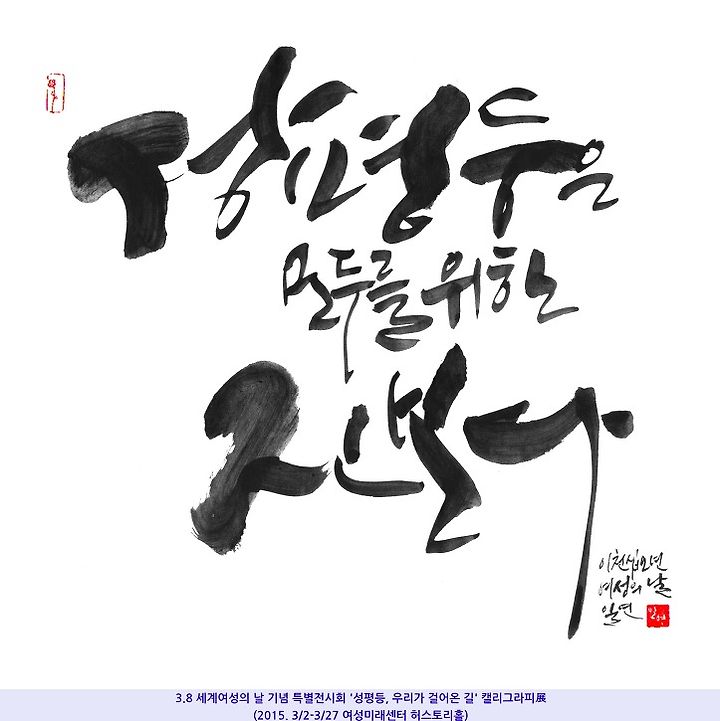 성평등은
모두를 위한
진보다
이천십오년
여성의 날
일연
3.8 세계여성의 날 기념 특별전시회 '성평등, 우리가 걸어온 길' 캘리그라피展
(2015. 3/2-3/27 여성미래센터 허스토리홀)